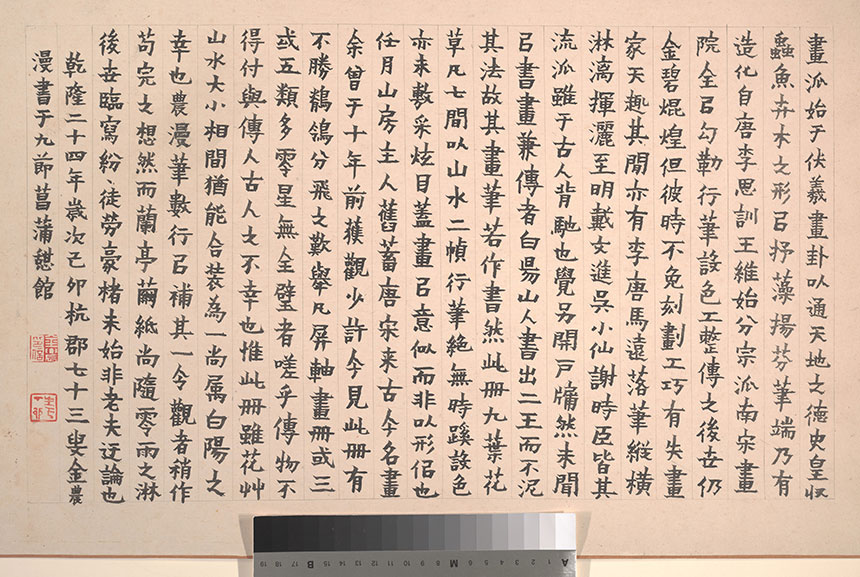 畫派始于伏羲畫卦以通天地之德史皇収
蟲魚卉木之形㠯抒藻揚芬筆端乃有
造化自唐李思訓王維始分宗派南宋畫
院全㠯勾勒行筆設色工整傳之後世仍
金碧焜煌但彼時不免刻劃工巧有失畫
家天趣其閒亦有李唐馬遠落筆縱橫
淋漓揮灑至明戴文進吳小仙謝時臣皆其
流派雖于古人背馳也覺另開戶牖然未聞
㠯書畫兼傳者白昜山人書出二王而不泥
其法故其畫筆若作書然此册九葉花
草凡七間以山水二幀行筆絕無時蹊設色
亦未敷采炫目蓋畫㠯意似而非以形侣也
任月山房主人舊蓄唐宋来古今名畫
余曾于十年前獲觀少許今見此册有
不勝鶺鴒分飛之歎舉凡屏軸畫册或三
或五類多零星無全璧者嗟乎傳物不
得付與傳人古人之不幸也惟此册雖花艸
山水大小相間猶能合装為一尚属白陽之
幸也農漫筆數行㠯補其一令觀者稍作
苟完之想然而蘭亭繭紙尚隨零雨之淋
後世臨寫紛〻徒勞豪楮未始非老夫迂論也
乾隆二十四年歲次己卯杭郡七十三叟金農
漫書于九節菖蒲憇館
A 1 2 3 4 5 6 7 8 M 9 10 11 12 13 14 15 B 17 18 19